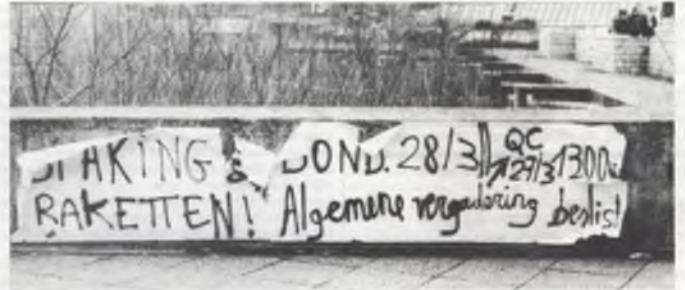 STAKING & DOND. 28/3 QC 29/3 1300u
RAKETTEN! Algemene vergadering beslist!